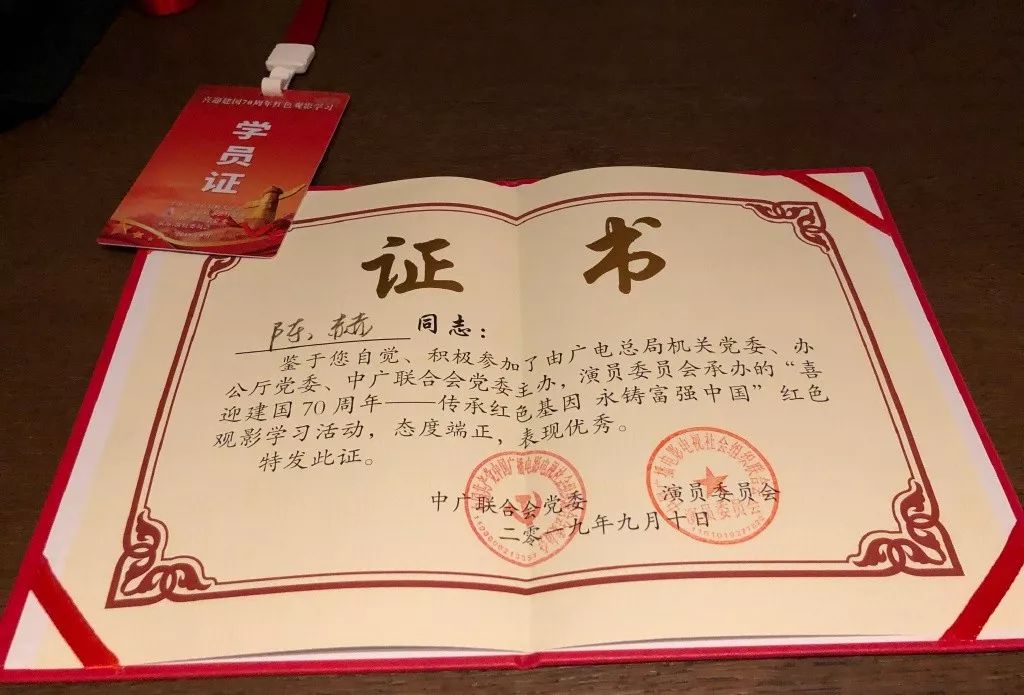 喜迎建国70周年红色观影学习
学员证
证书
陈赫 同志：
鉴于您自觉、积极参加了由广电总局机关党委、办
公厅党委、中广联合会党委主办，演员委员会承办的“喜
迎建国70周年——传承红色基因 永铸富强中国”红色
观影学习活动，态度端正，表现优秀。
特发此证。
中广联合会党委 演员委员会
二零一九年九月十日